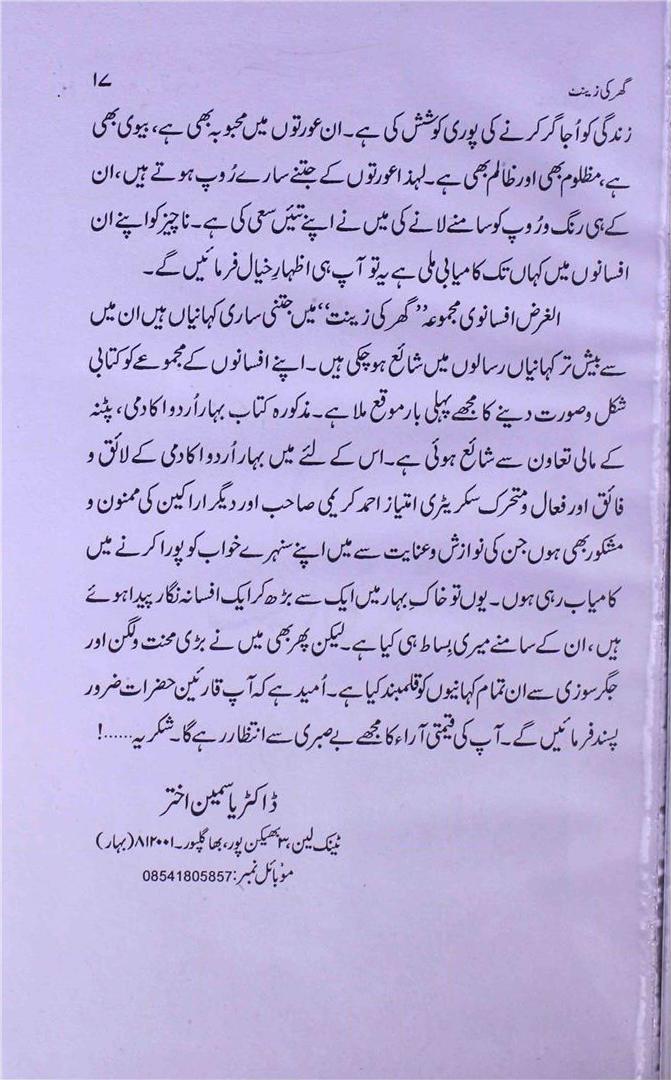 گھر کی زینت ۱۷
زندگی کو اُجاگر کرنے کی پوری کوشش کی ہے۔ ان عورتوں میں محبوبہ بھی ہے، بیوی بھی
ہے، مظلوم بھی اور ظالم بھی ہے۔ لہٰذا عورتوں کے جتنے سارے رُوپ ہوتے ہیں، ان
کے ہی رنگ و رُوپ کو سامنے لانے کی میں نے اپنے تئیں سعی کی ہے۔ ناچیز کو اپنے ان
افسانوں میں کہاں تک کامیابی ملی ہے یہ تو آپ ہی اظہارِ خیال فرمائیں گے۔
الغرض افسانوی مجموعہ ”گھر کی زینت“ میں جتنی ساری کہانیاں ہیں ان میں
سے بیش تر کہانیاں رسالوں میں شائع ہو چکی ہیں۔ اپنے افسانوں کے مجموعے کو کتابی
شکل و صورت دینے کا مجھے پہلی بار موقع ملا ہے۔ مذکورہ کتاب بہار اُردو اکادمی، پٹنہ
کے مالی تعاون سے شائع ہوئی ہے۔ اس کے لئے میں بہار اُردو اکادمی کے لائق و
فائق اور فعال و متحرک سکریٹری امتیاز احمد کریمی صاحب اور دیگر اراکین کی ممنون و
مشکور بھی ہوں جن کی نوازش و عنایت سے میں اپنے سنہرے خواب کو پورا کرنے میں
کامیاب رہی ہوں۔ یوں تو خاکِ بہار میں ایک سے بڑھ کر ایک افسانہ نگار پیدا ہوئے
ہیں، ان کے سامنے میری بِساط ہی کیا ہے۔ لیکن پھر بھی میں نے بڑی محنت و لگن اور
جگر سوزی سے ان تمام کہانیوں کو قلمبند کیا ہے۔ اُمید ہے کہ آپ قارئین حضرات ضرور
پسند فرمائیں گے۔ آپ کی قیمتی آراء کا مجھے بے صبری سے انتظار رہے گا۔ شکریہ ......!
ڈاکٹر یاسمین اختر
ٹینک لین، ۳ بھیکن پور، بھاگلپور۔ ۸۱۲۰۰۱ (بہار)
موبائل نمبر: 08541805857